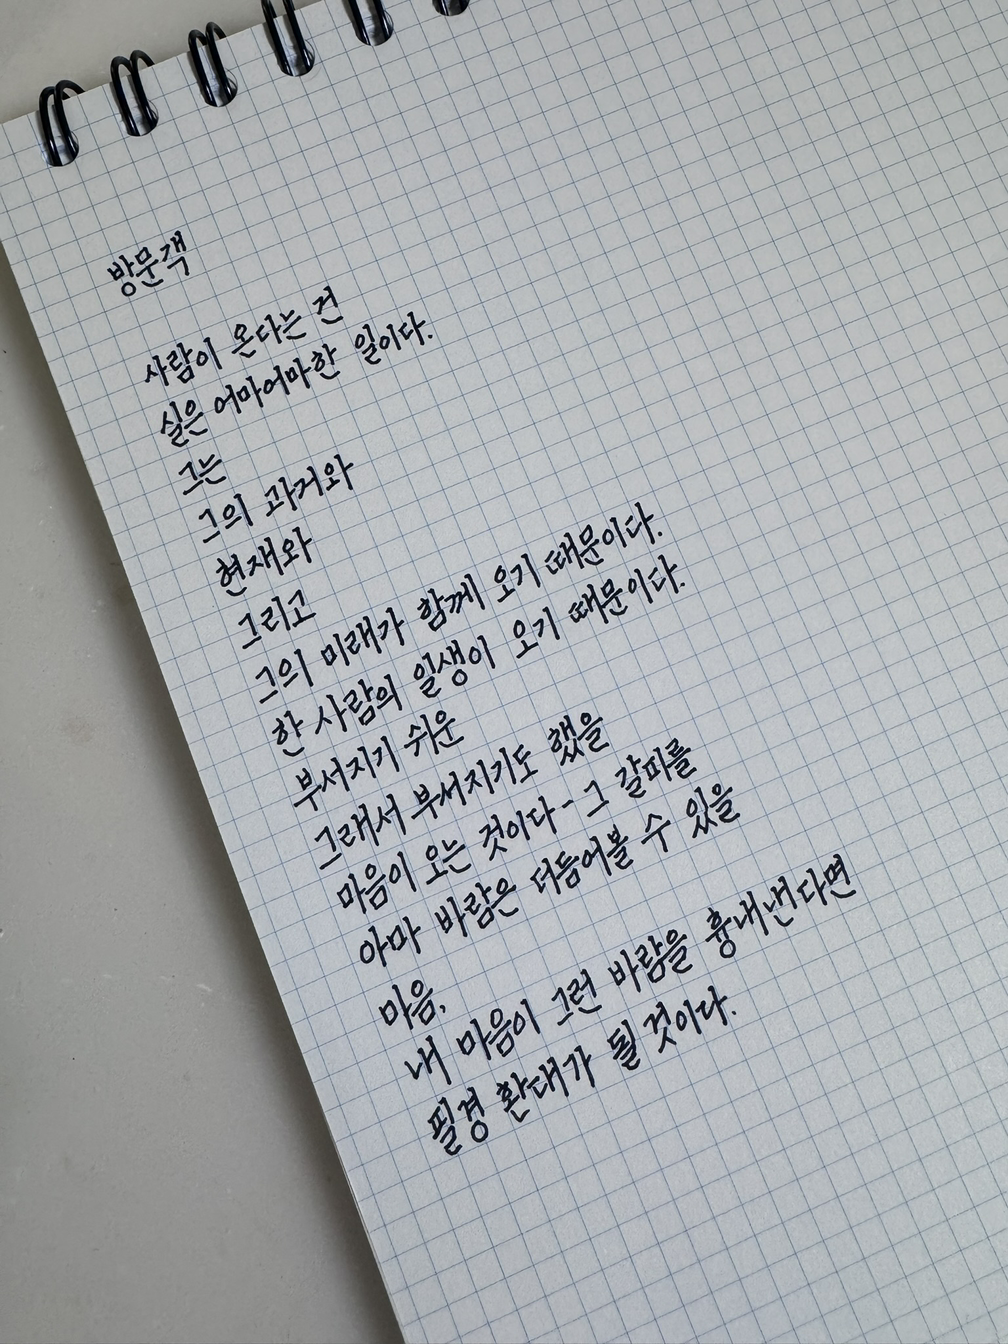 방문객
사람이 온다는 건
실은 어마어마한 일이다.
그는
그의 과거와
현재와
그리고
그의 미래가 함께 오기 때문이다.
한 사람의 일생이 오기 때문이다.
부서지기 쉬운
그래서 부서지기도 했을
마음이 오는 것이다 - 그 갈피를
아마 바람은 더듬어볼 수 있을
마음,
내 마음이 그런 바람을 흉내낸다면
필경 환대가 될 것이다.